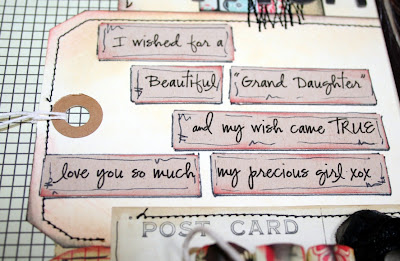 I wished for a
Beautiful "Grand Daughter"
and my wish came TRUE
love you so much my precious girl xox
POST CARD